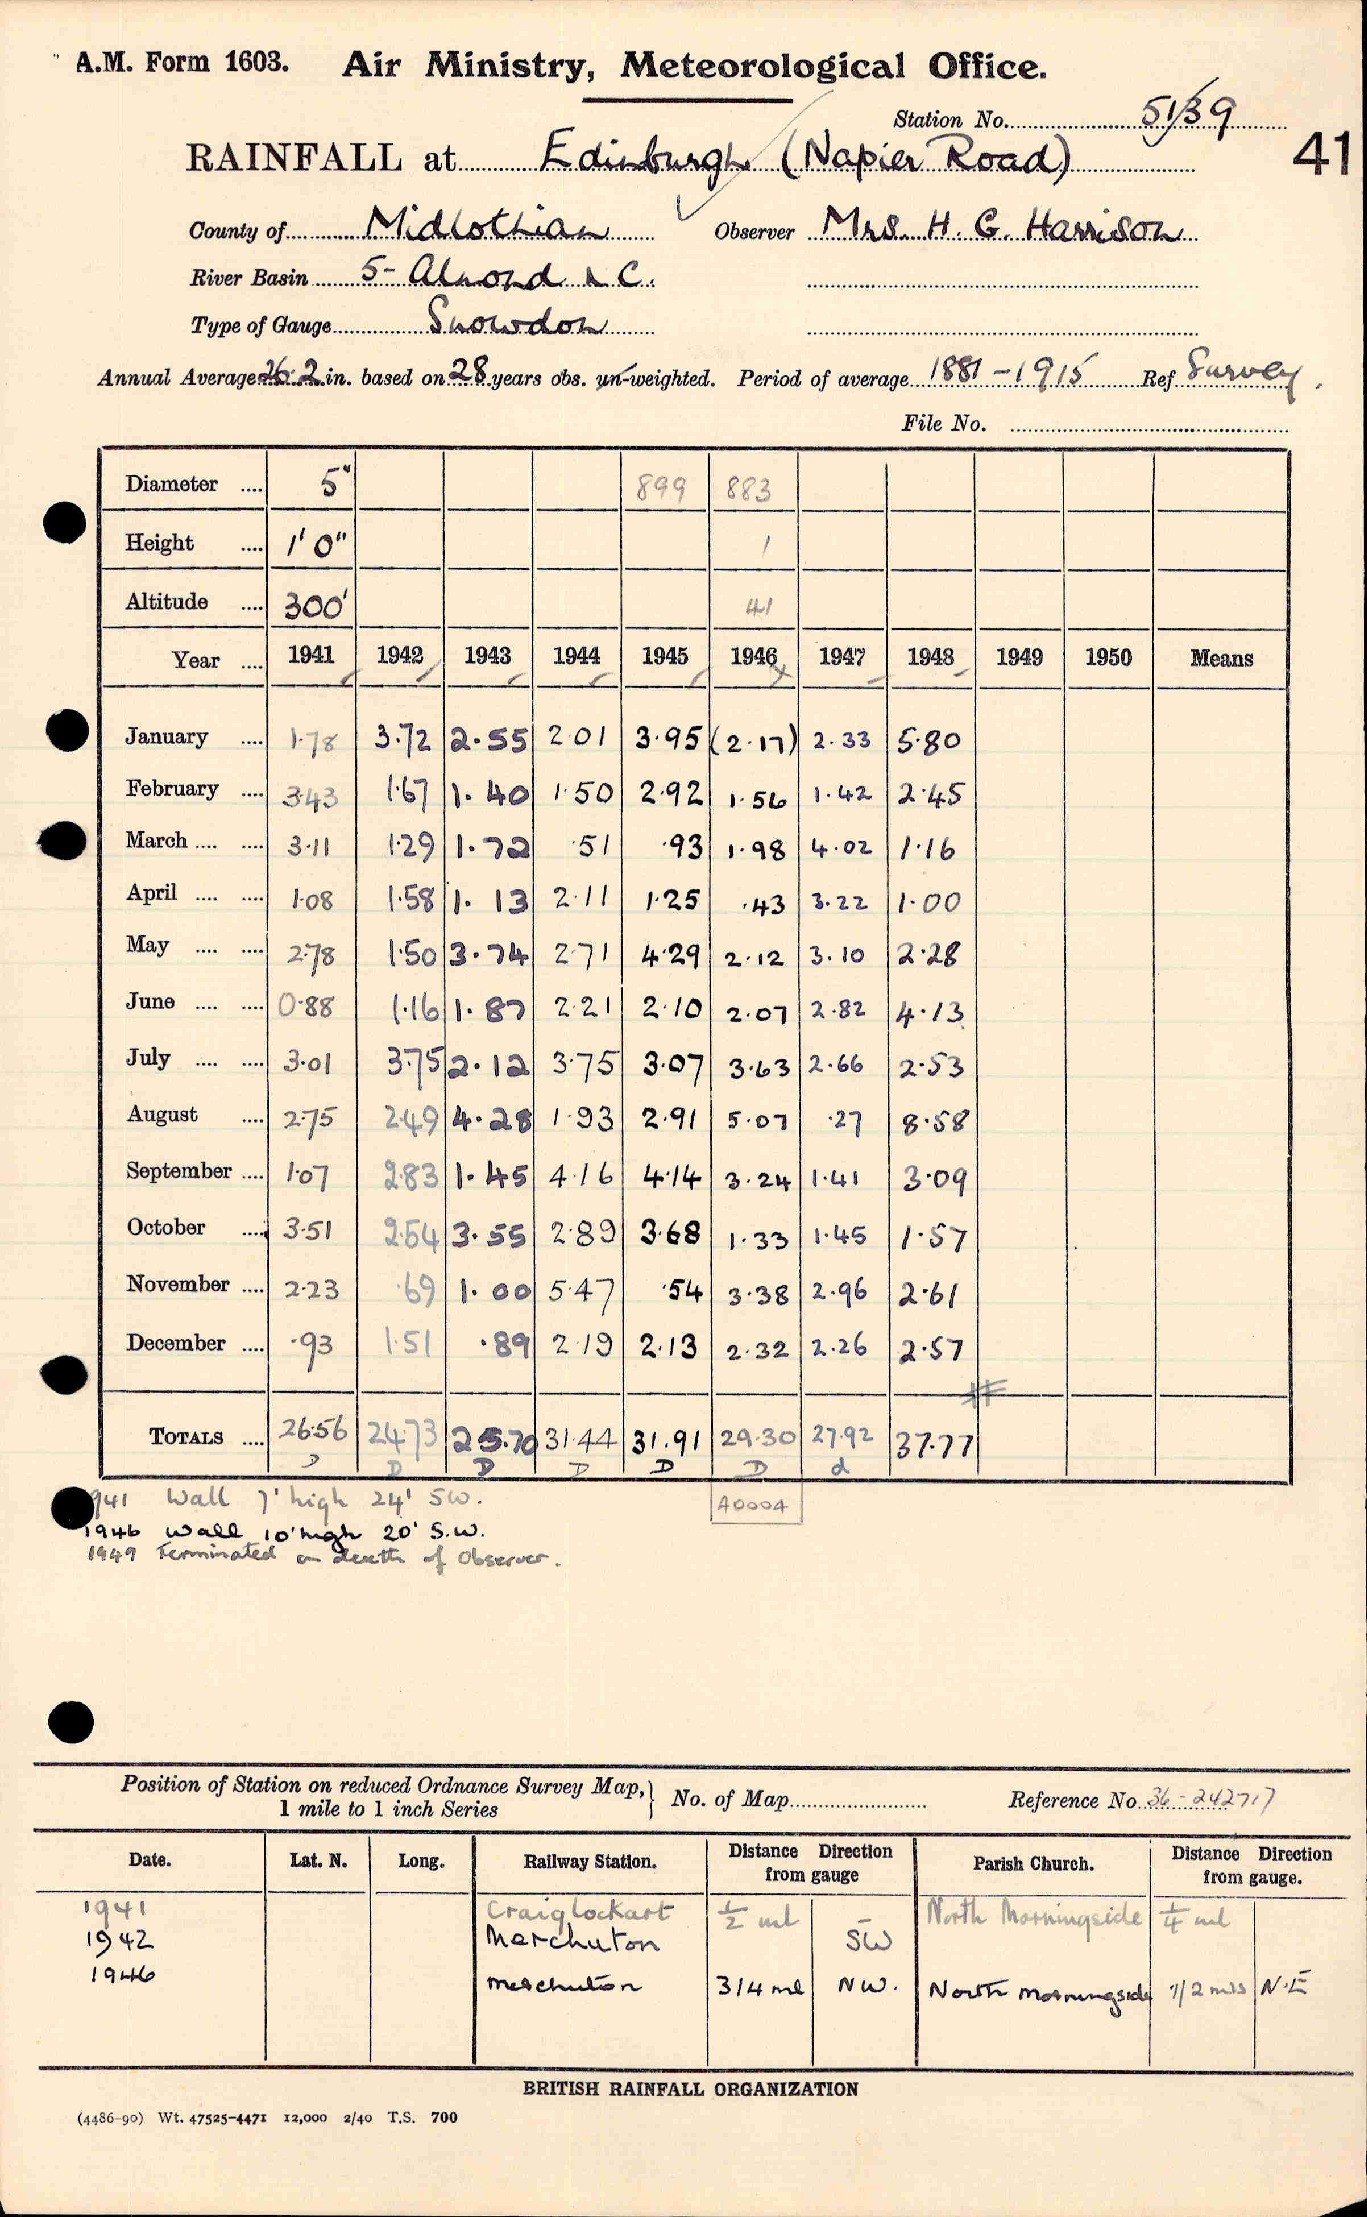 A.M. Form 1603. Air Ministry, Meteorological Office.
Station No. 51/39
41
RAINFALL at Edinburgh (Napier Road)
County of Midlothian Observer Mrs. H. G. Harrison
River Basin 5- Almond & C.
Type of Gauge Snowdon
Annual Average 26.2 in. based on 28 years obs. un-weighted. Period of average 1881-1915 Ref Survey.
File No.
Diameter .... 5" 899 883
Height .... 1' 0" 1
Altitude .... 300' 41
Year .... 1941 1942 1943 1944 1945 1946 1947 1948 1949 1950 Means
January .... 1.78 3.72 2.55 2.01 3.95 (2.17) 2.33 5.80
February .... 3.43 1.67 1.40 1.50 2.92 1.56 1.42 2.45
March .... .... 3.11 1.29 1.72 .51 .93 1.98 4.02 1.16
April .... .... 1.08 1.58 1.13 2.11 1.25 .43 3.22 1.00
May .... .... 2.78 1.50 3.74 2.71 4.29 2.12 3.10 2.28
June .... .... 0.88 1.16 1.87 2.21 2.10 2.07 2.82 4.13
July .... .... 3.01 3.75 2.12 3.75 3.07 3.63 2.66 2.53
August .... 2.75 2.49 4.28 1.93 2.91 5.07 .27 8.58
September .... 1.07 2.83 1.45 4.16 4.14 3.24 1.41 3.09
October .... 3.51 2.54 3.55 2.89 3.68 1.33 1.45 1.57
November .... 2.23 .69 1.00 5.47 .54 3.38 2.96 2.61
December .... .93 1.51 .89 2.19 2.13 2.32 2.26 2.57
TOTALS .... 26.56 24.73 25.70 31.44 31.91 29.30 27.92 37.77
D D D D D D d
1941 Wall 7' high 24' SW.
A0004
1946 Wall 10' high 20' S.W.
1949 Terminated on death of Observer.
Position of Station on reduced Ordnance Survey Map, 1 mile to 1 inch Series } No. of Map Reference No. 36-242717
Date. Lat. N. Long. Railway Station. Distance Direction from gauge Parish Church. Distance Direction from gauge.
1941 Craiglockart 1/2 ml North Morningside 1/4 ml
1942 Merchuton SW
1946 Merchuton 3/4 ml NW. North Morningside 1/2 mls N.E
BRITISH RAINFALL ORGANIZATION
(4486-90) Wt. 47525-4471 12,000 2/40 T.S. 700